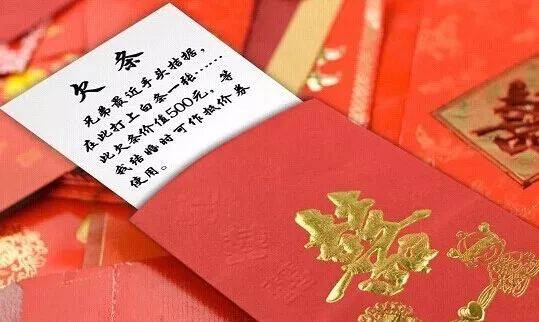 欠条
兄弟最近手头拮据，
在此打上白条一张……
此欠条价值500元，等
我结婚时可作抵价券
使用。
囍
囍